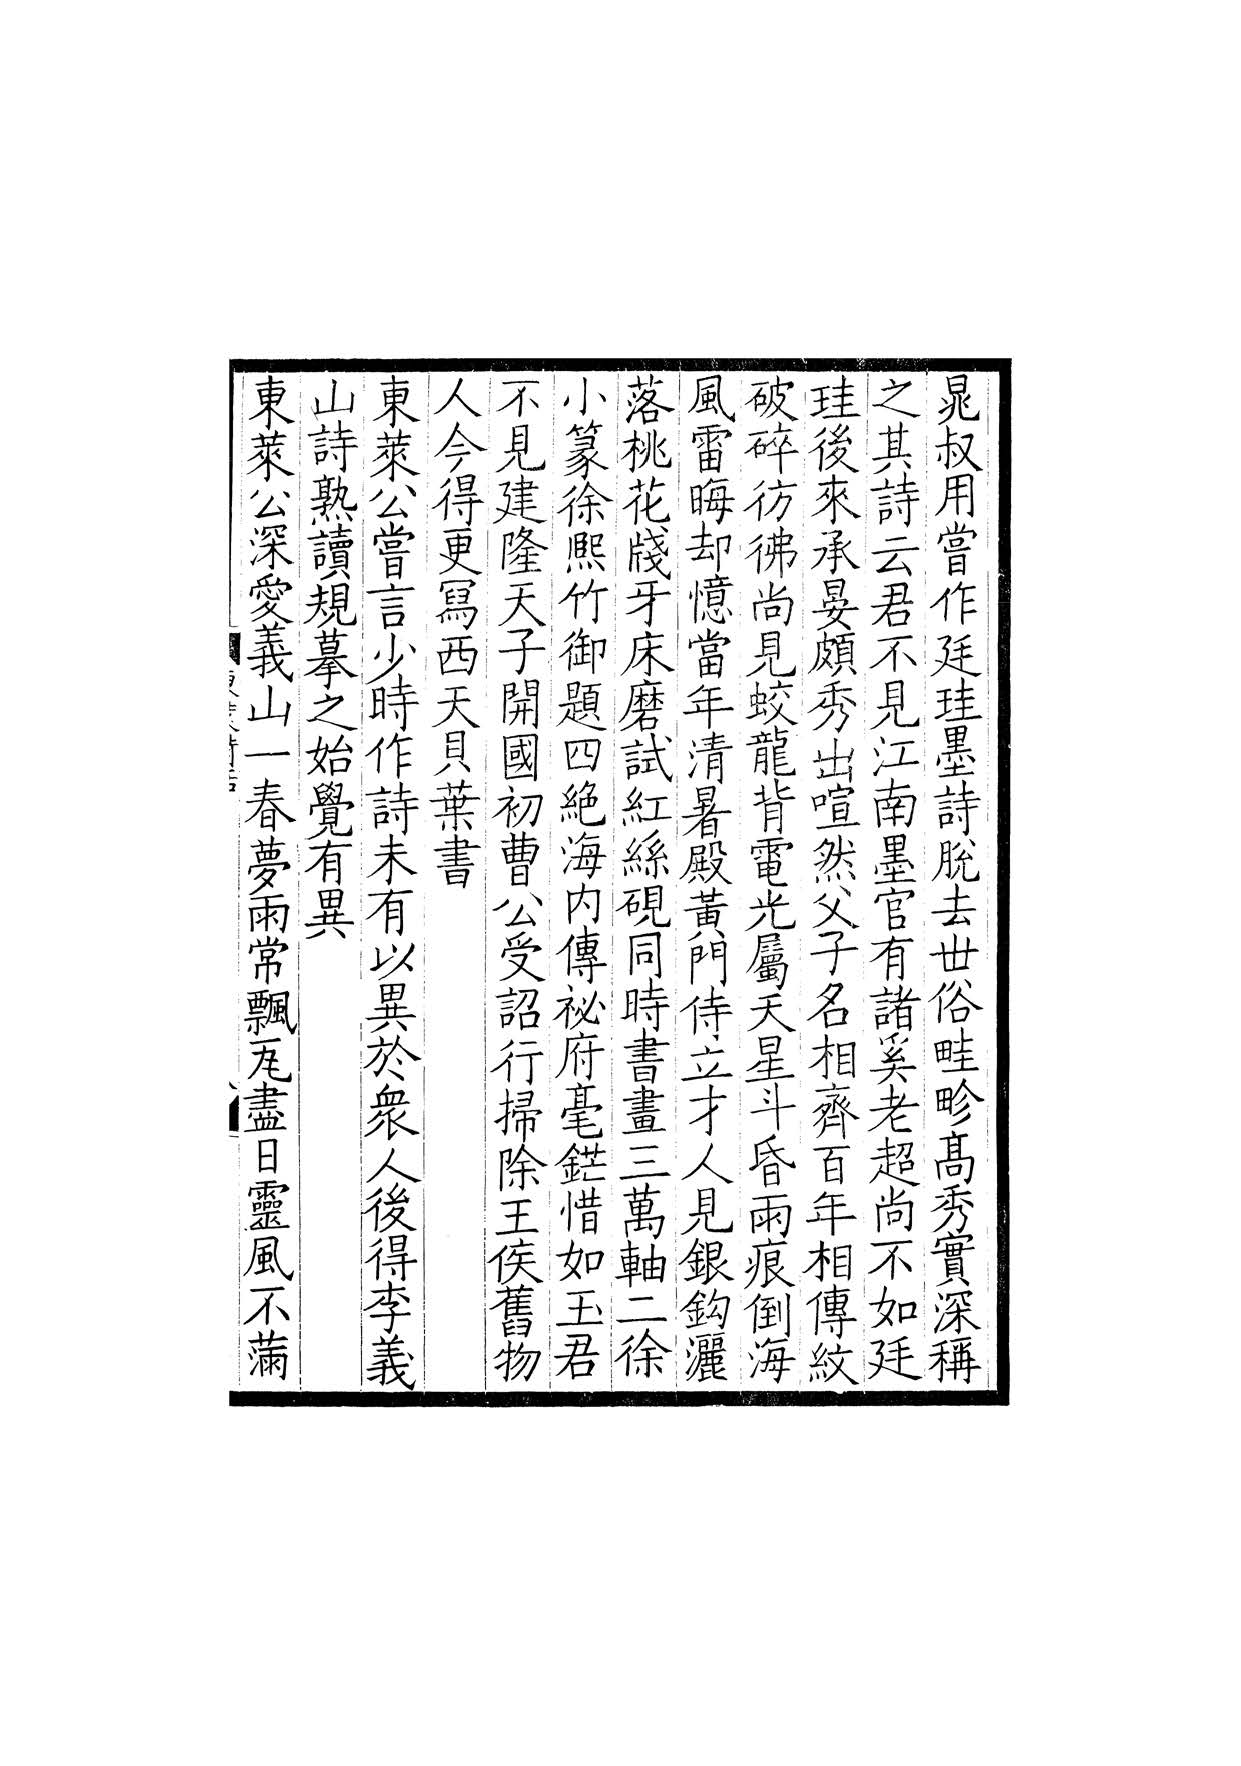 晁叔用嘗作廷珪墨詩脫去世俗畦畛高秀實深稱
之其詩云君不見江南墨官有諸奚老超尚不如廷
珪後來承晏頗秀出喧然父子名相齊百年相傳紋
破碎彷彿尚見蛟龍背電光屬天星斗昏雨痕倒海
風雷晦却憶當年清暑殿黃門侍立才人見銀鈎灑
落桃花牋牙床磨試紅絲硯同時書畫三萬軸二徐
小篆徐熙竹御題四絕海内傳祕府毫鋩惜如玉君
不見建隆天子開國初曹公受詔行掃除王侯舊物
人今得更冩西天貝葉書
東萊公嘗言少時作詩未有以異於衆人後得李義
山詩熟讀規摹之始覺有異
東萊公深愛義山一春夢雨常飄瓦盡日靈風不滿